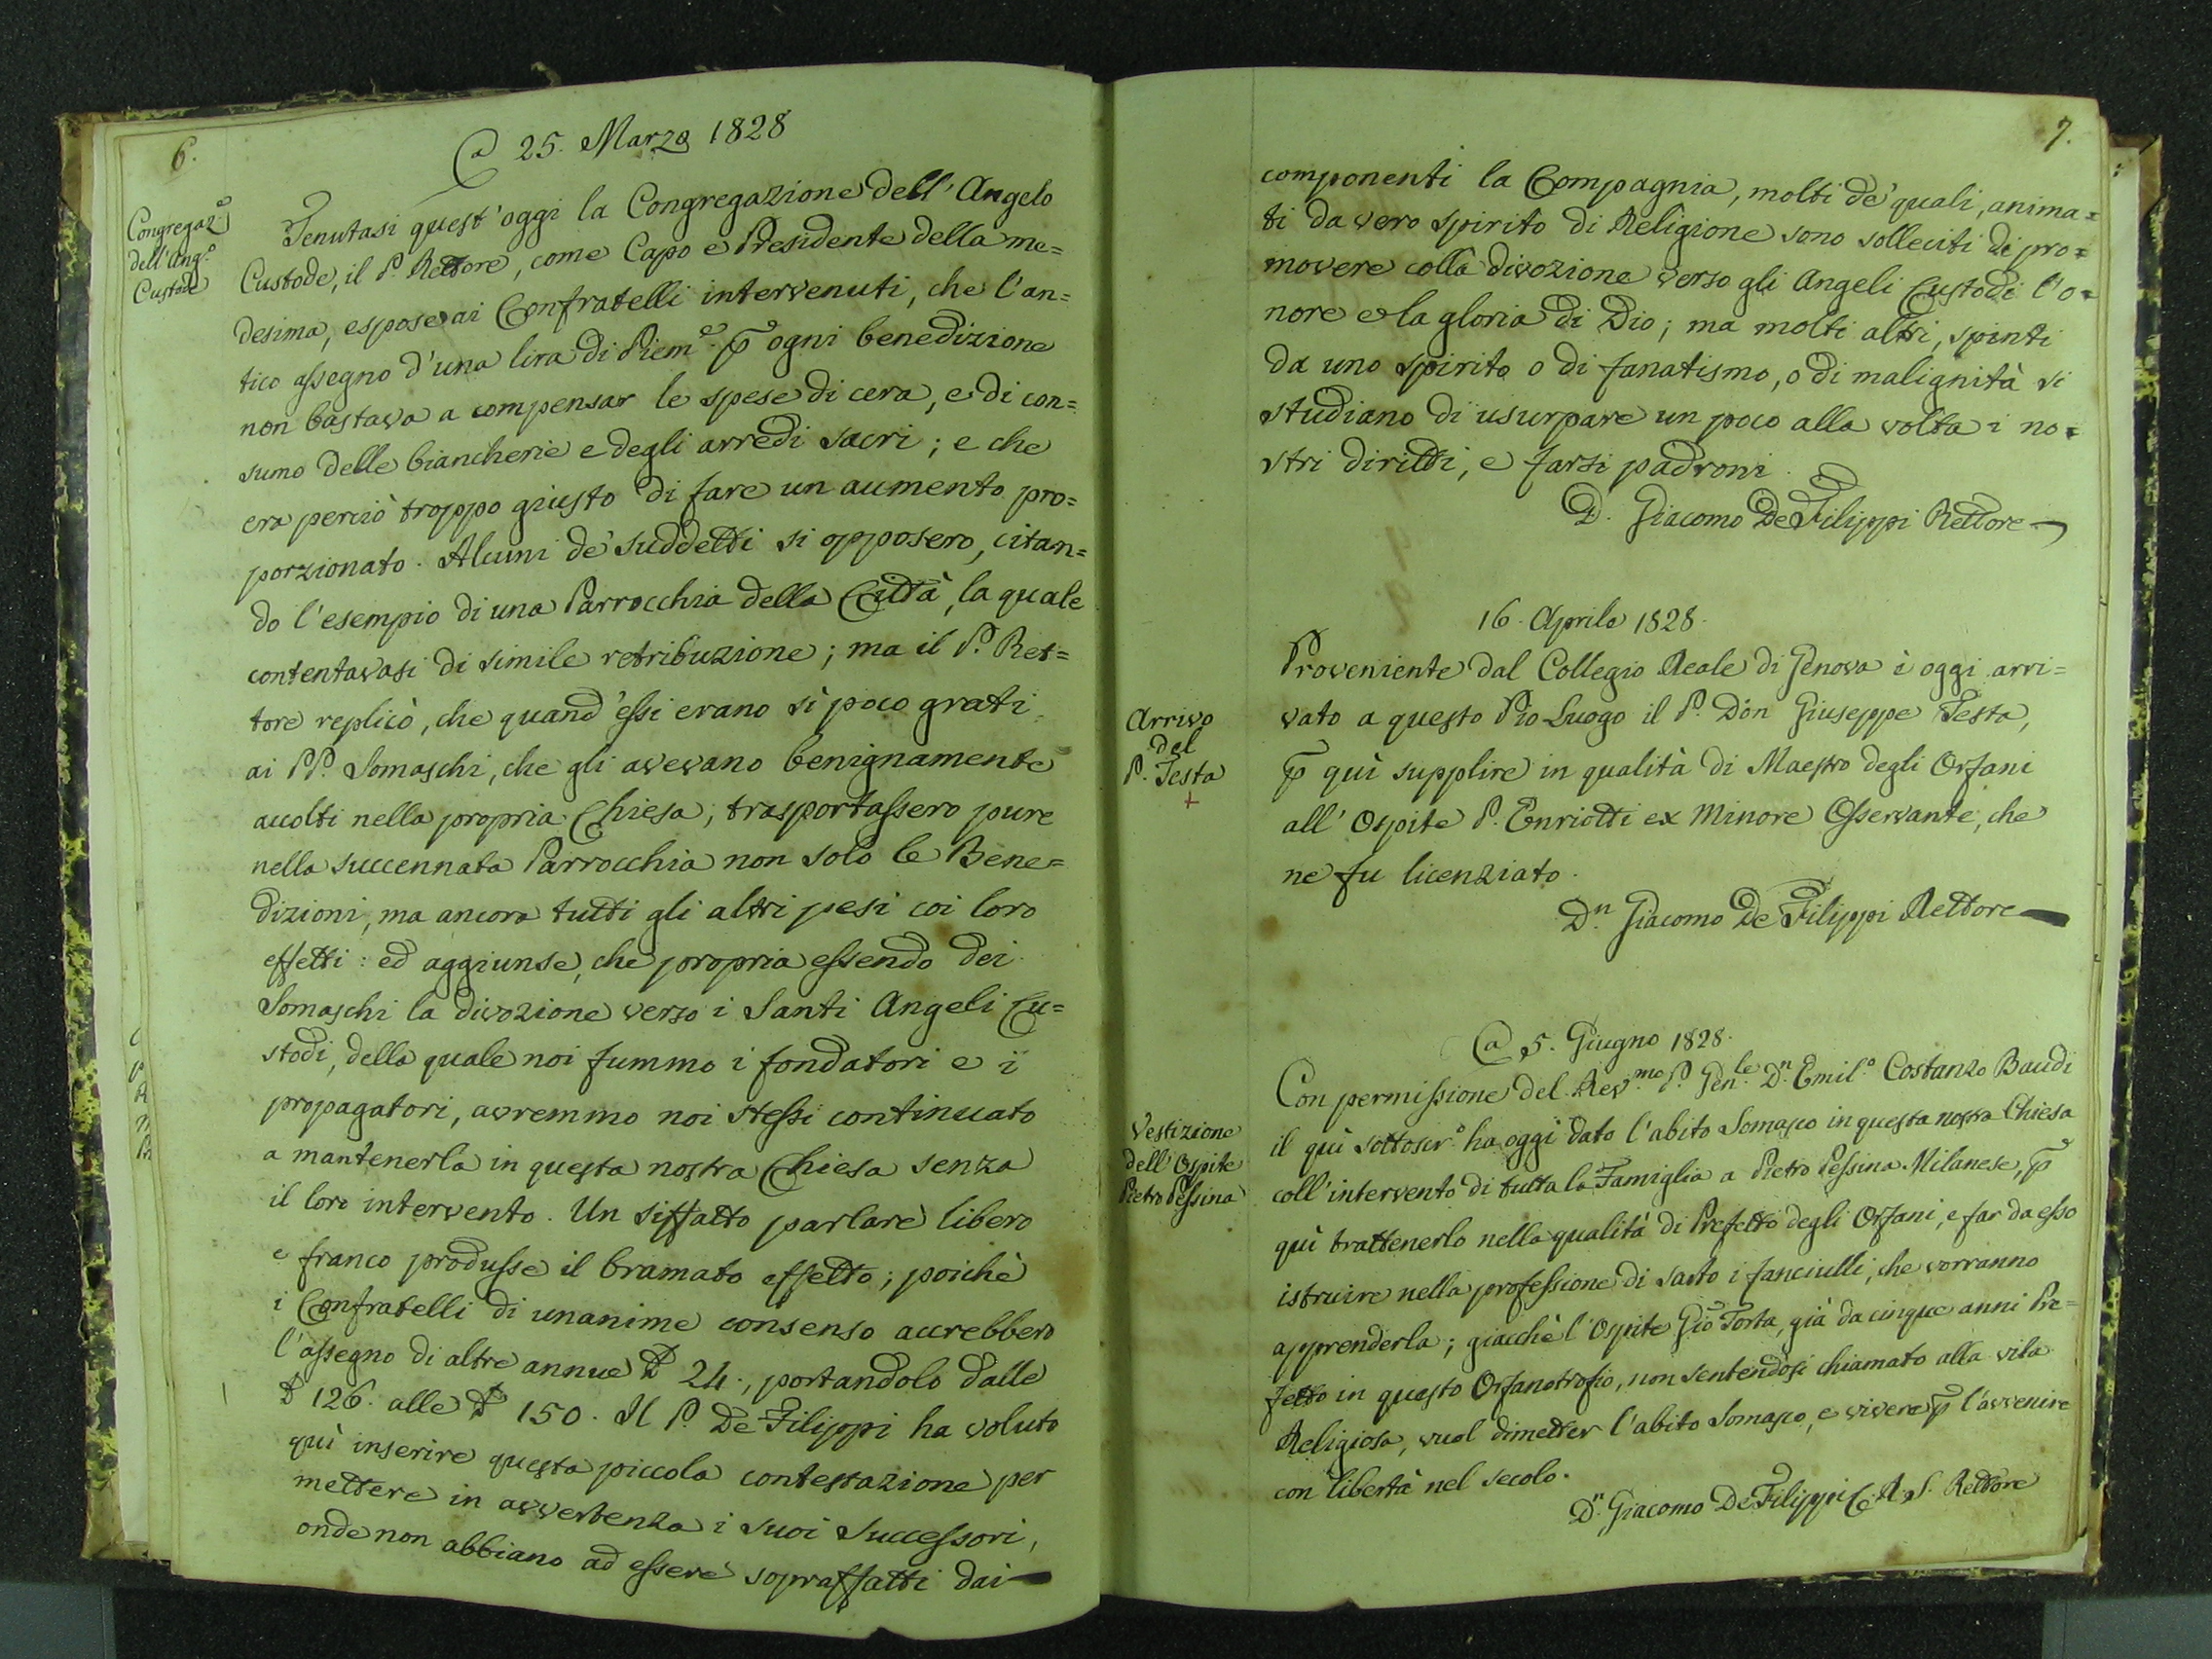 6.
A 25. Marzo 1828
Congregaz.e
dell'Ang.o
Custode
Tenutasi quest'oggi la Congregazione dell'Angelo
Custode, il P. Rettore, come Capo e Presidente della me=
desima, espose ai Confratelli intervenuti, che l'an=
tico assegno d'una lira di Piem.e p ogni benedizione
non bastava a compensar le spese di cera, e di con=
sumo delle biancherie e degli arredi sacri; e che
era perciò troppo giusto di fare un aumento pro=
porzionato. Alcuni de' suddetti si opposero, citan=
do l'esempio di una Parrocchia della Città, la quale
contentavasi di simile retribuzione; ma il P. Ret=
tore replicò, che quand'essi erano sì poco grati
ai PP. Somaschi, che gli avevano benignamente
accolti nella propria Chiesa, trasportassero pure
nella succennata Parrocchia non solo le Bene=
dizioni, ma ancora tutti gli altri pesi coi loro
effetti: ed aggiunse, che propria essendo dei
Somaschi la divozione verso i Santi Angeli Cu=
stodi, della quale noi fummo i fondatori e i
propagatori, avremmo noi stessi continuato
a mantenerla in questa nostra Chiesa senza
il loro intervento. Un siffatto parlare libero
e franco produsse il bramato effetto; poichè
i Confratelli di unanime consenso accrebbero
l'assegno di altre annue ₶ 24., portandolo dalle
₶ 126. alle ₶ 150. Il P. De Filippi ha voluto
quì inserire questa piccola contestazione per
mettere in avvertenza i suoi Successori,
onde non abbiano ad essere sopraffatti dai
7.
componenti la Compagnia, molti de' quali, anima=
ti da vero spirito di Religione sono solleciti di pro=
movere colla divozione verso gli Angeli Custodi l'o=
nore e la gloria di Dio; ma molti altri, spinti
da uno spirito o di fanatismo, o di malignità si
studiano di usurpare un poco alla volta i no=
stri diritti, e farsi padroni.
D. Giacomo De Filippi Rettore
16. Aprile 1828.
Arrivo
del
P. Testa
+
Proveniente dal Collegio Reale di Genova è oggi arri=
vato a questo Pio Luogo il P. Don Giuseppe Testa,
p quì supplire in qualità di Maestro degli Orfani
all'Ospite P. Enriotti ex Minore Osservante, che
ne fu licenziato.
D.n Giacomo De Filippi Rettore
A 5. Giugno 1828.
Vestizione
dell'Ospite
Pietro Pessina
Con permissione del Rev.mo P. Gen.le D.n Emil.o Costanzo Baudi
il quì sottoscr.o ha oggi dato l'abito Somasco in questa nostra Chiesa
coll'intervento di tutta la Famiglia a Pietro Pessina Milanese, p
quì trattenerlo nella qualità di Prefetto degli Orfani, e far da esso
istruire nella professione di sarto i fanciulli, che vorranno
apprenderla; giacchè l'Ospite Gio Torta, già da cinque anni Pre=
fetto in questo Orfanotrofio, non sentendosi chiamato alla vita
Religiosa, vuol dimetter l'abito Somasco, e vivere p l'avvenire
con libertà nel secolo.
D.n Giacomo De Filippi C. R. S. Rettore